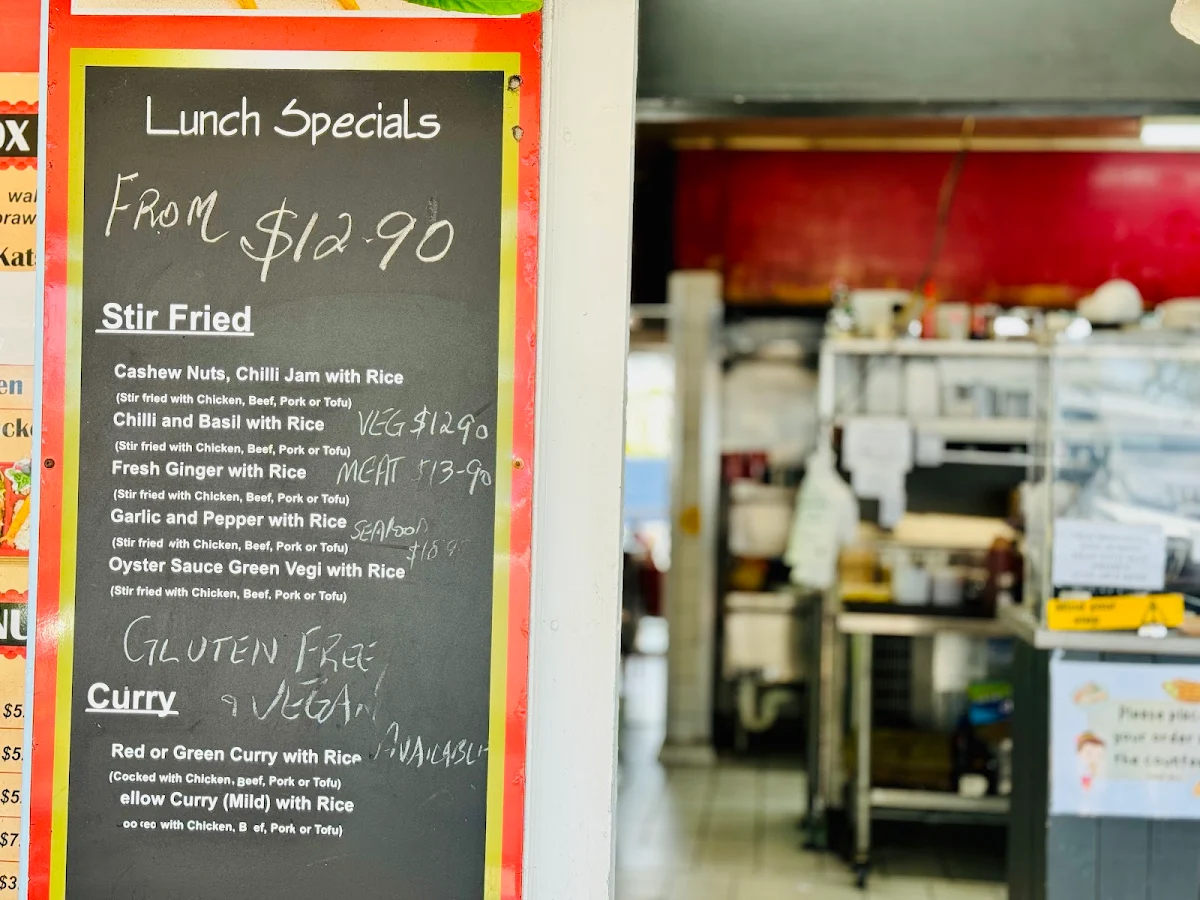 Lunch Specials
FROM $12.90
Stir Fried
Cashew Nuts, Chilli Jam with Rice
(Stir fried with Chicken, Beef, Pork or Tofu)
Chilli and Basil with Rice VEG $12.90
(Stir fried with Chicken, Beef, Pork or Tofu)
Fresh Ginger with Rice MEAT $13-90
(Stir fried with Chicken, Beef, Pork or Tofu)
Garlic and Pepper with Rice SEAFOOD
(Stir fried with Chicken, Beef, Pork or Tofu)
Oyster Sauce Green Vegi with Rice
(Stir fried with Chicken, Beef, Pork or Tofu)
GLUTEN FREE
Curry VEGAN
Red or Green Curry with Rice AVAILABLE
(Cocked with Chicken, Beef, Pork or Tofu)
ellow Curry (Mild) with Rice
with Chicken, B ef, Pork or Tofu)
OX
wal
raw
Kats
en
cke
NU
$5.
$5.
$5.
$7.
$3.
Mind your
step
Please plac
your order
the counter